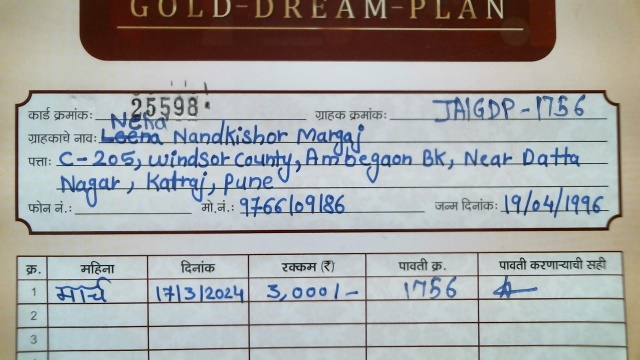 GOLD-DREAM-PLAN
कार्ड क्रमांक: 25598 ग्राहक क्रमांक: JAIGDP-1756
Neha
ग्राहकाचे नाव: Leena Nandkishor Margaj
पत्ता: C-205, Windsor County, Ambegaon BK, Near Datta
Nagar, Katraj, Pune
फोन नं.: मो.नं.: 9766109186 जन्म दिनांक: 19/04/1996
क्र. महिना दिनांक रक्कम (₹) पावती क्र. पावती करणाऱ्याची सही
1 मार्च 17/3/2024 3,000/- 1756
2
3